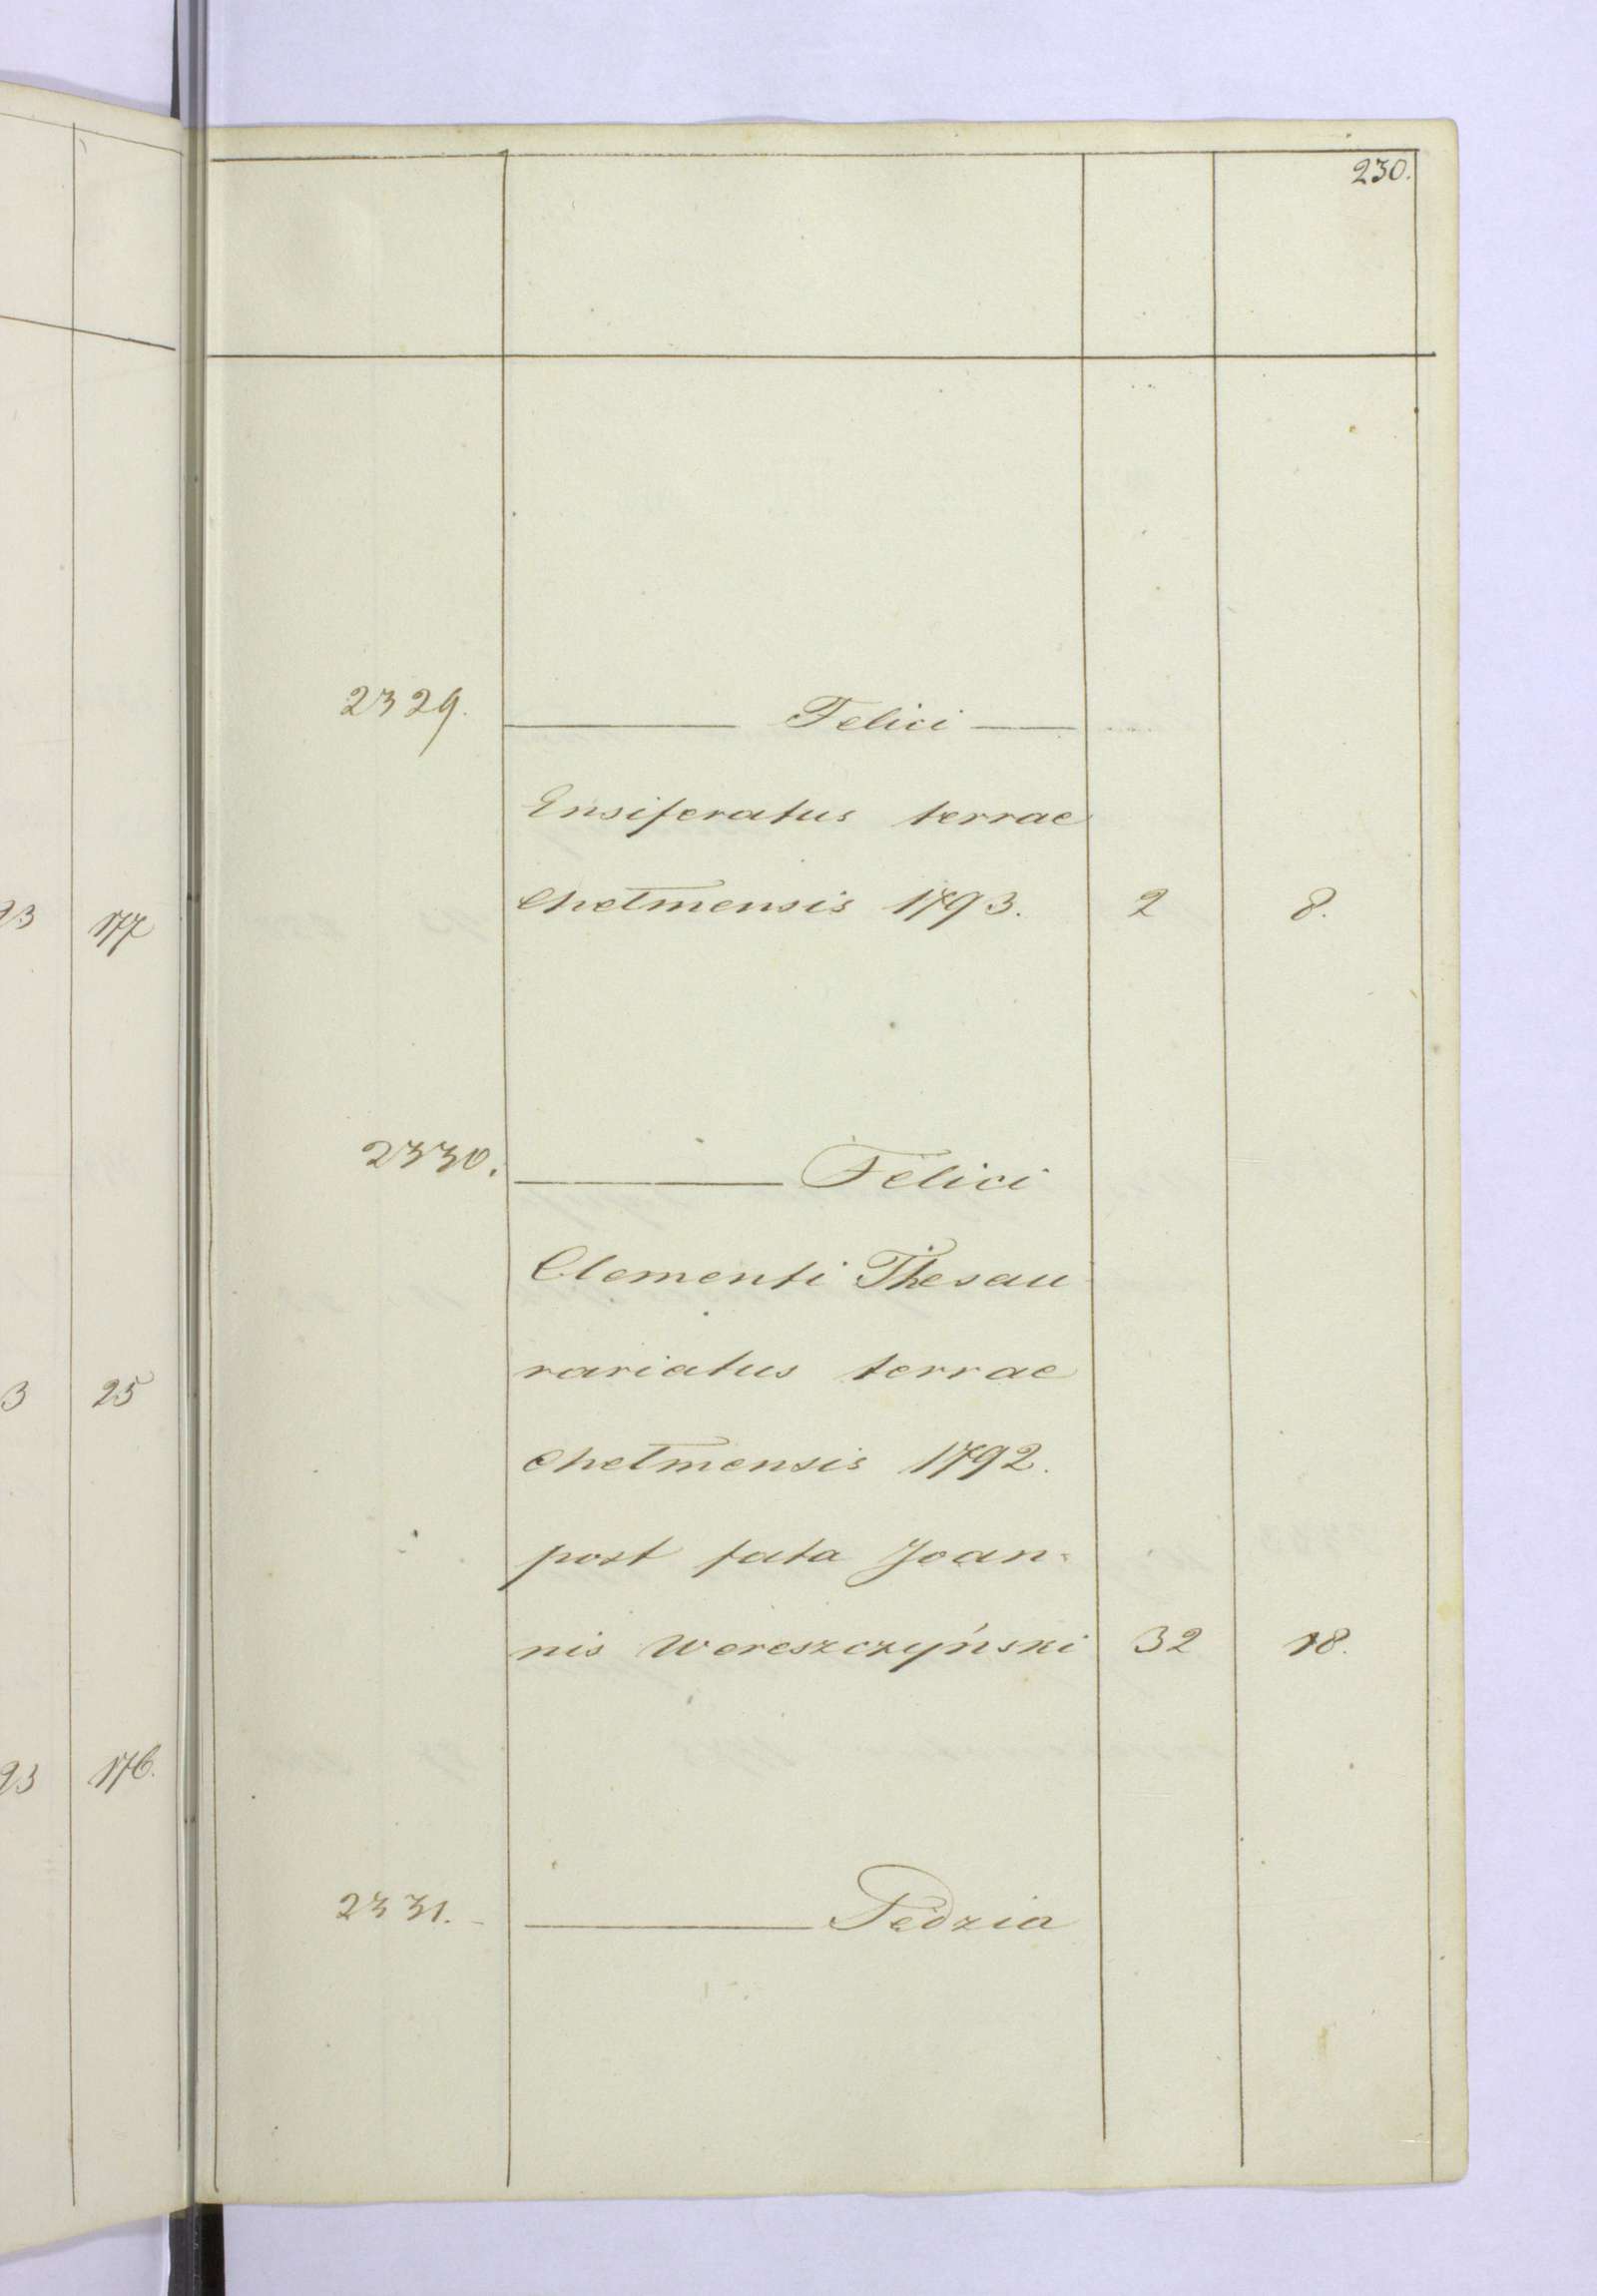 230.
2329. Felici
Ensiferatus terrae
Chełmensis 1793. 2 8.
23 177
2330. Felici
Clementi Thesau
rariatus terrae
3 25
Chełmensis 1792.
post fata Joan-
nis Wereszczyński 32 18.
23 176.
2331. Fedzia